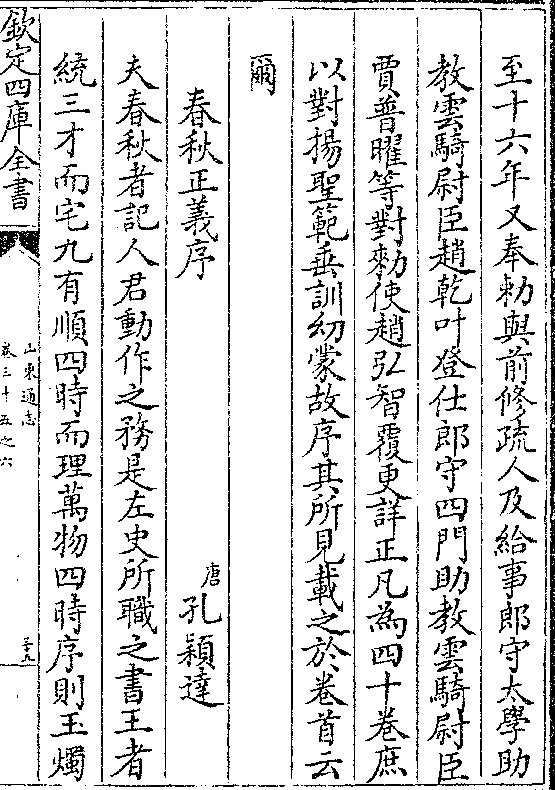 至十六年又奉勅與前修疏人及給事郎守太學助
教雲騎尉臣趙乾叶登仕郎守四門助教雲騎尉臣
賈普曜等對勅使趙弘智覆更詳正凡為四十卷庶
以對揚聖範垂訓幼蒙故序其所見載之於卷首云
爾
春秋正義序
唐 孔穎達
夫春秋者記人君動作之務是左史所職之書王者
統三才而宅九有順四時而理萬物四時序則玉燭
欽定四庫全書
山東通志
卷三十五之六
三十九